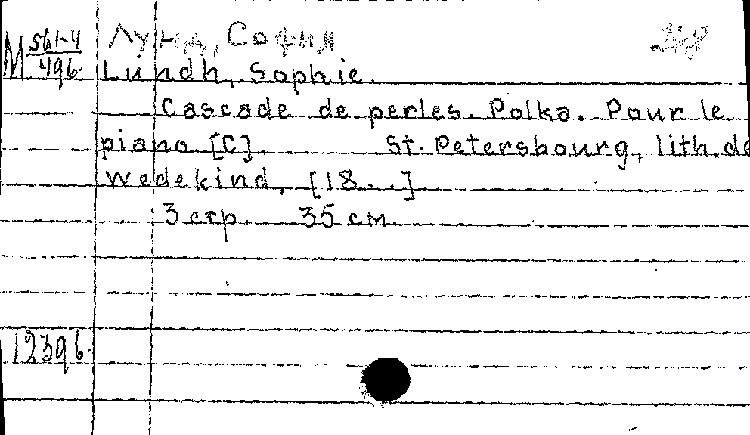 М 561-4/496
Лунд, София
Lundh, Sophie.
Cascade de perles. Polka. Pour le
piano [C]. St. Petersbourg, lith. de
Wedekind, [18...]
3 стр. 35 см.
12396.